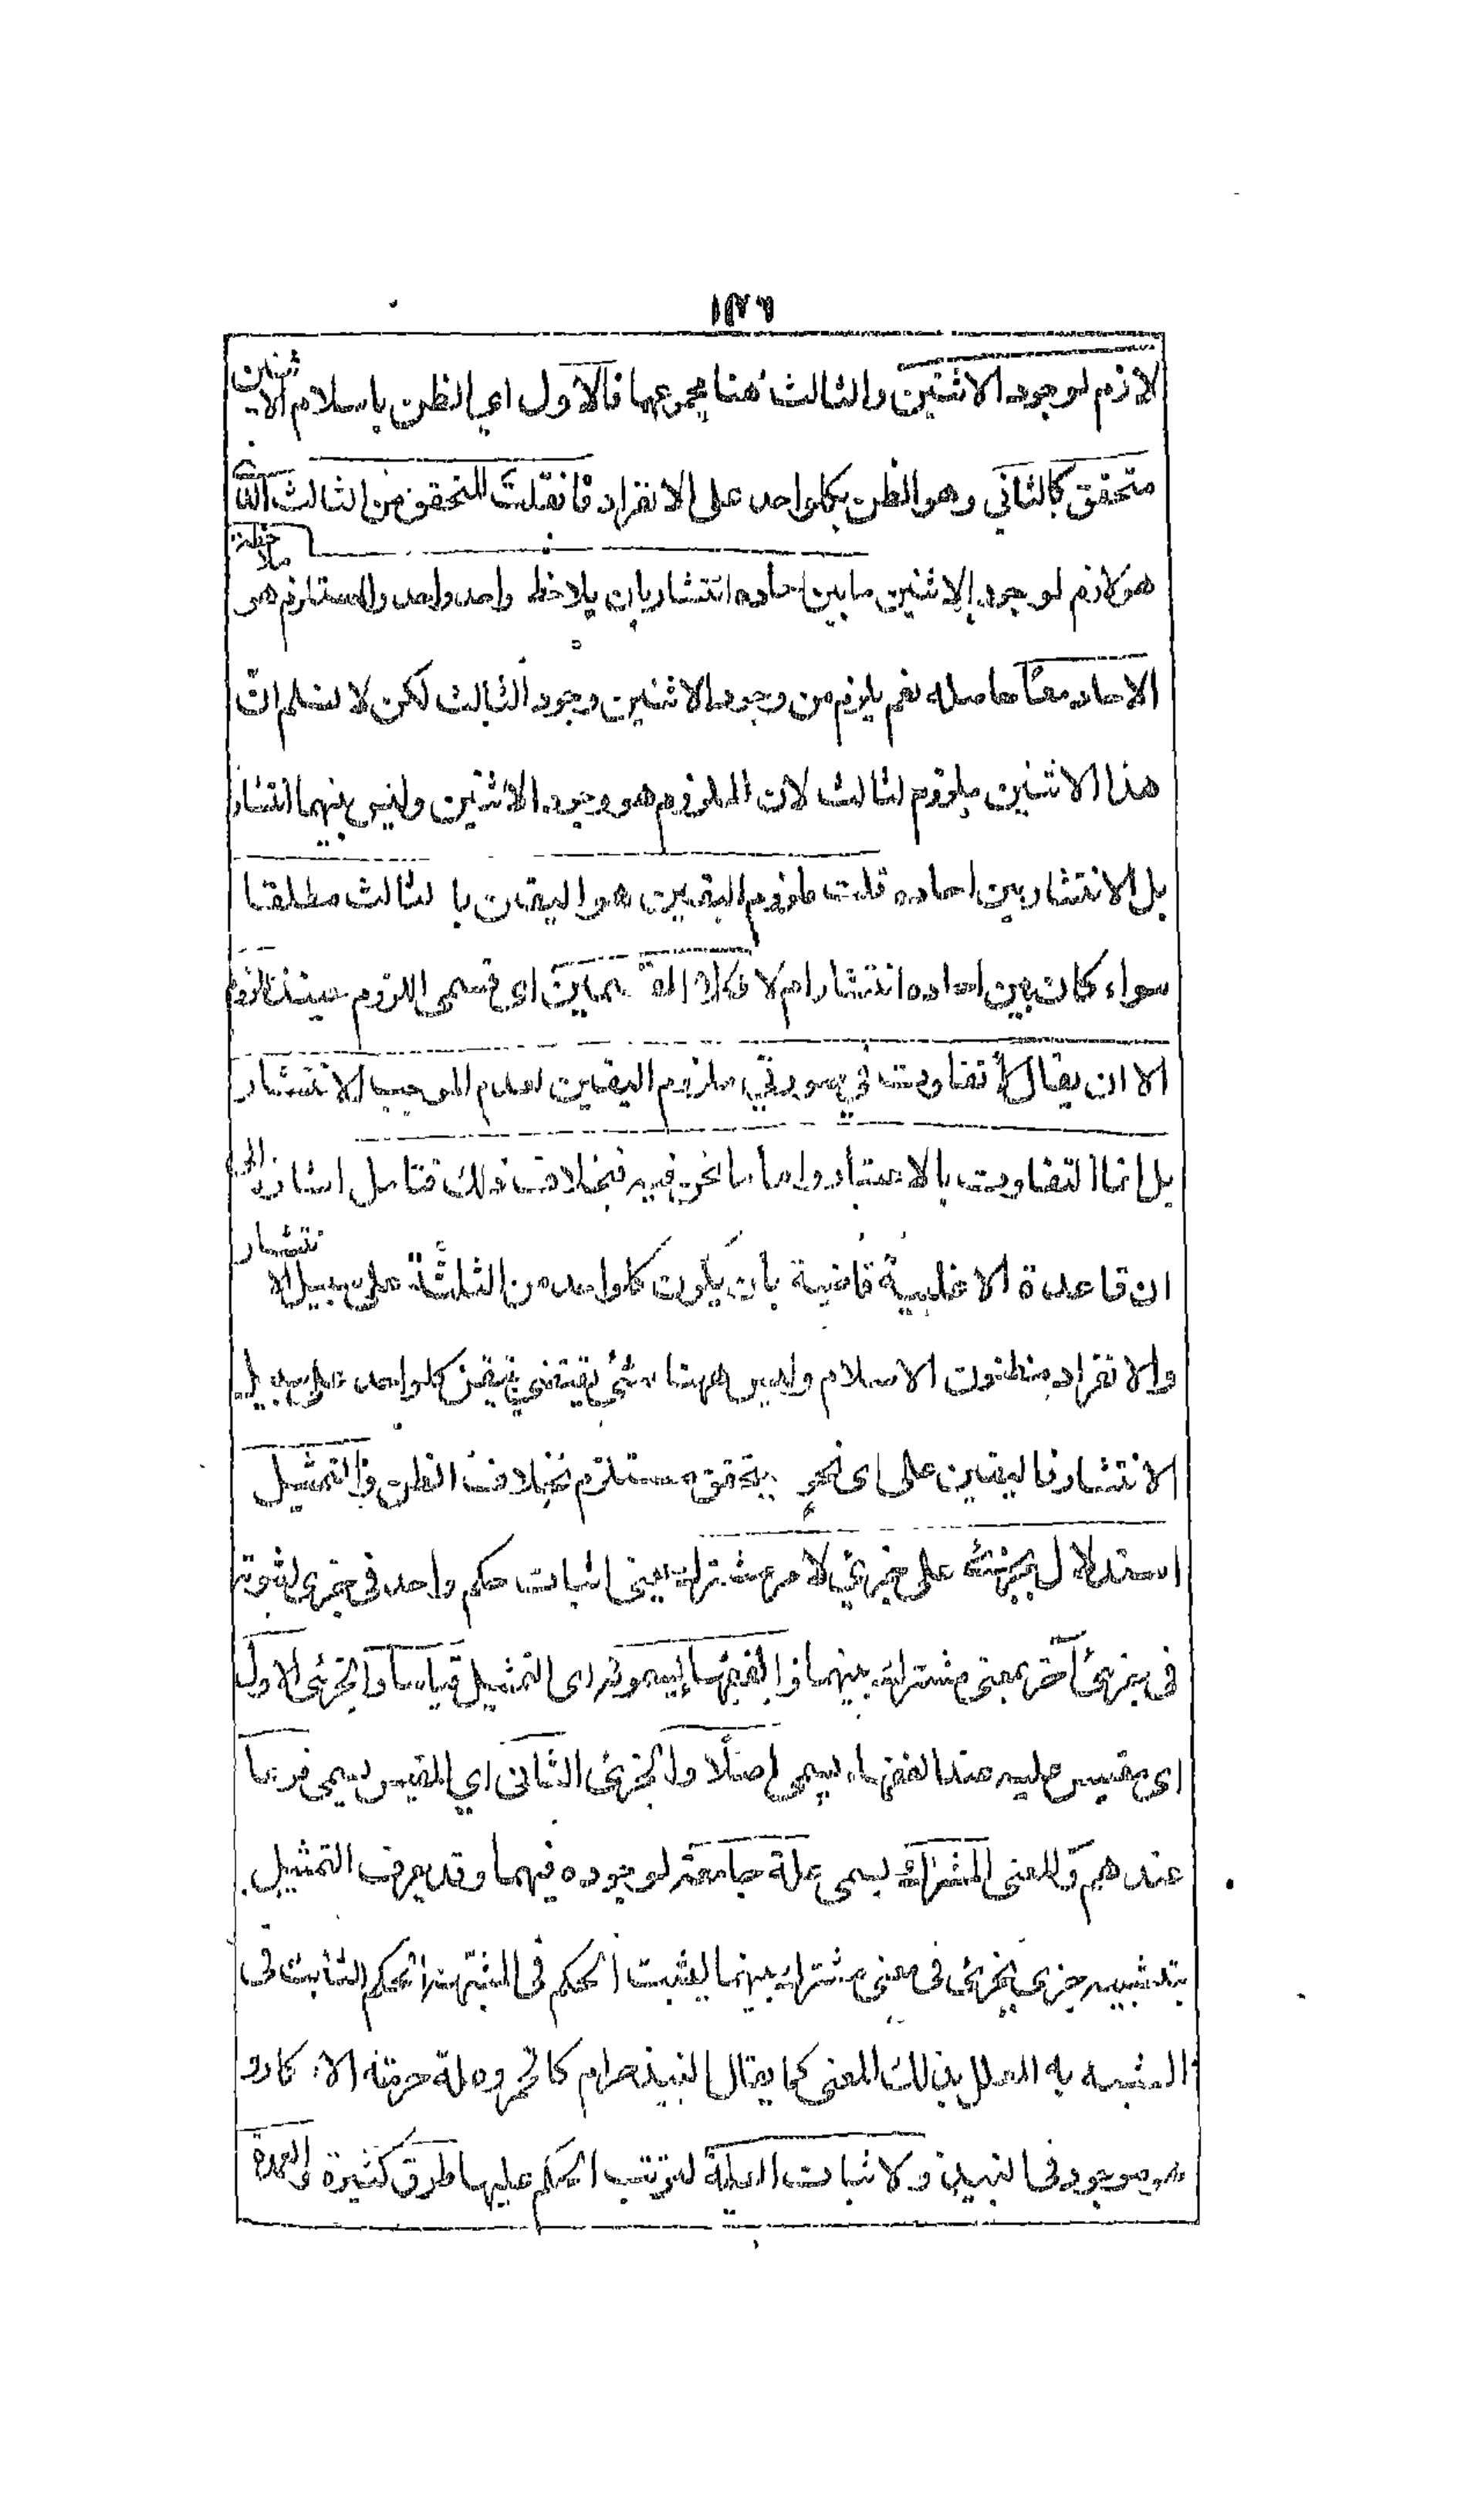 لازم لوجود الاثنين والثالث هنا مجموعهما فالاول اي الظن باسلام الاثنين
متحقق كالثاني وهو الظن بكلواحد على الانفراد فانقلت المتحقق من الثالث الذي
هو لازم لوجود الاثنين ما بين احاده انتشار بان يلاحظ واحد واحد والمستلزم هو ملاحظة
الاحاد معًا حاصله نعم يلزم من وجود الاثنين وجود الثالث لكن لا نسلم ان
هذا الاثنين ملزوم لثالث لان الملزوم هو وجود الاثنين وليس بينهما انتشار
بل الانتشار بين احاده قلت ملزوم اليقين هو اليقين بالثالث مطلقا
سواء كان بين احاده انتشار ام لا اي قسمي اللزوم حينئذ
الا ان يقال لا تفاوت في صورتي ملزوم اليقين لعدم الموجب الانتشار
بل انما التفاوت بالاعتبار واما ما نحن فيه فبخلاف ذلك فتامل اشارة الى
ان قاعدة الاغلبية قاضية بان يكون كلواحد من الثلثة على سبيل الانتشار
والانفراد مظنون الاسلام وليس ههنا شئ يقتضي تيقن كلواحد على سبيل
الانتشار فاليقين على اى نحو يتحقق مستلزم بخلاف الظن والتمثيل
استدلال بجزئي على جزئي لامر مشترك يعنى اثبات حكم واحد فى جزى لثبوته
فى جزئ آخر بمعنى مشترك بينهما والفقهاء يسمونه اى التمثيل قياسا والجزئى الاول
اى مقيس عليه عند الفقهاء يسمى اصلًا والجزئى الثانى اي المقيس يسمى فرعا
عندهم والمعنى المشترك يسمى علة جامعة لوجوده فيهما وقد يعرف التمثيل
بتشبيه جزى بجزئى فى معنى مشترك بينهما ليثبت الحكم فى المشبه الحكم الثابت فى
المشبه به المعلل بذلك المعنى كما يقال النبيذ حرام كالخمر وعلة حرمته الاسكار و
هو موجود فى النبيذ ولاثبات العلية لترتب الحكم عليها طرق كثيرة والعمدة